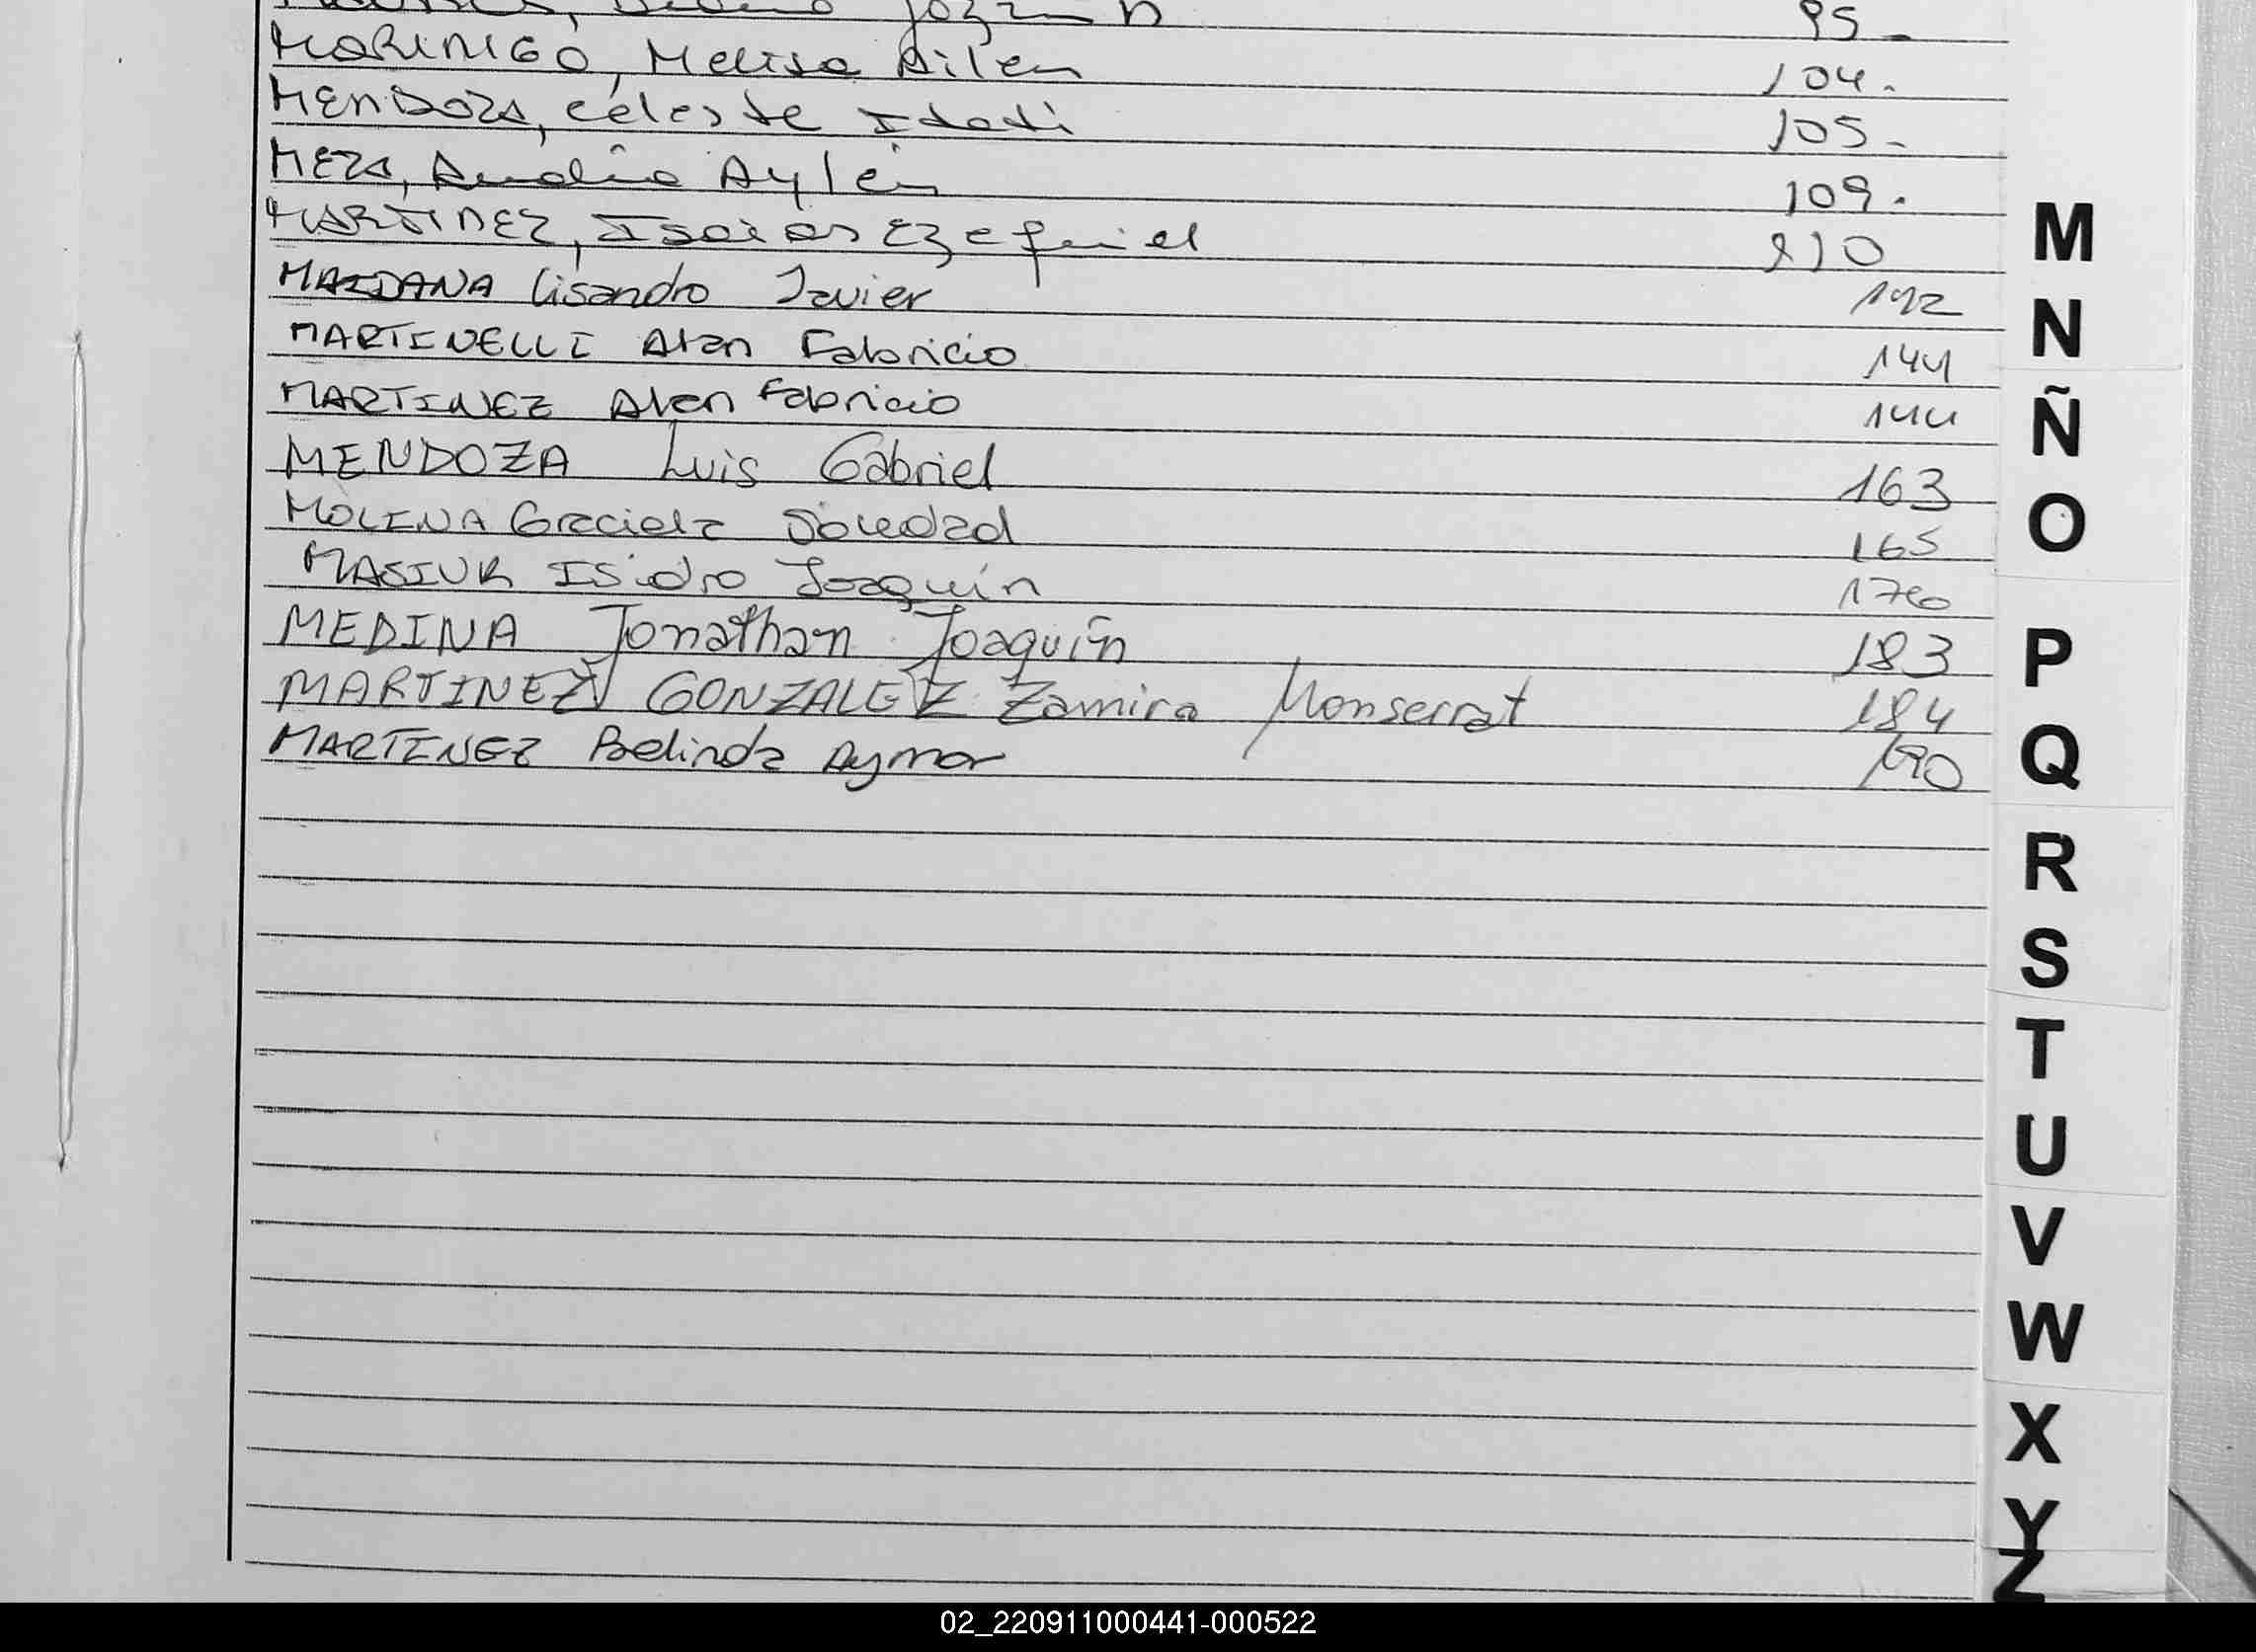 95-
MORINIGO, Melisa Ailen 104.
MENDOZA, Celeste Itati 105-
MEZA, Analia Aylén 109.
MARTINEZ, Isaias Ezequiel 110
MAIDANA Lisandro Javier 142
MARTINELLI Alan Fabricio 144
MARTINEZ Alan Fabricio 144
MENDOZA Luis Gabriel 163
MOLINA Graciela Soledad 165
MASIUK Isidro Joaquín
MEDINA Jonathan Joaquín 183
MARTINEZ GONZALEZ Zamira Monserrat 184
MARTINEZ Belinda Aymar 190
M
N
Ñ
O
P
Q
R
S
T
U
V
W
X
Y
Z
02_220911000441-000522